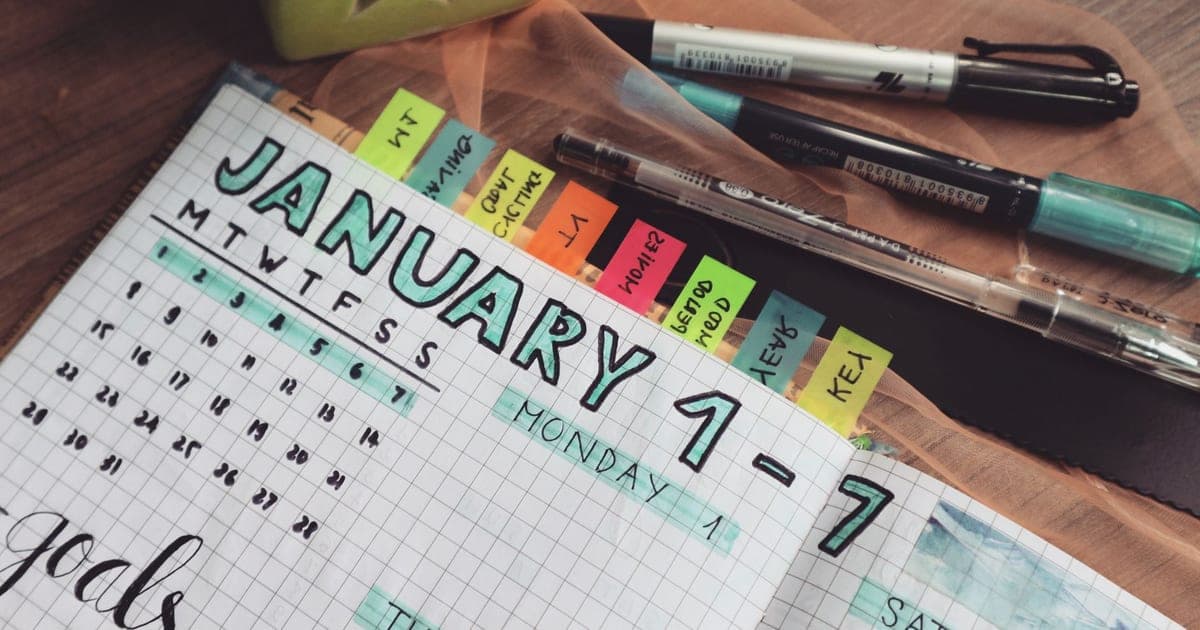 JANUARY 1-7
M T W T F S S
1 2 3 4 5 6 7
8 9 10 11 12 13 14
15 16 17 18 19 20 21
22 23 24 25 26 27 28
29 30 31
goals
MONDAY 1
SAT
MT
GOAL
YT
MOVIES
PERIOD
MOOD
YEAR
KEY
8935001810339
RECAP AFTER USE
8935001810308
0.38